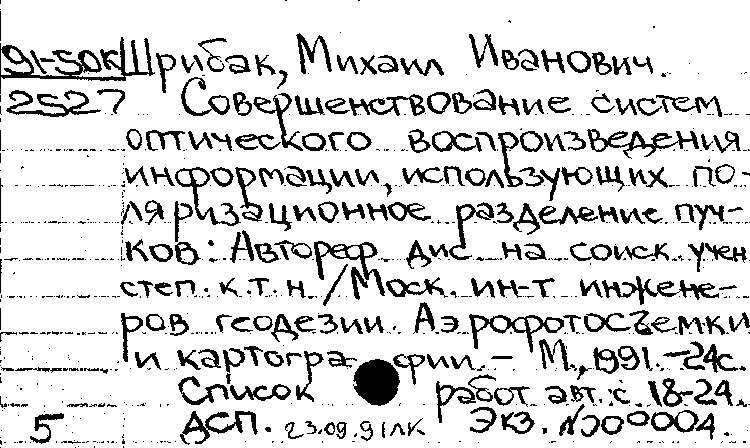 91-50К Шрибак, Михаил Иванович.
2527 Совершенствование систем
оптического воспроизведения
информации, использующих по-
ляризационное разделение пуч-
ков: Автореф. дис. на соиск. учен.
степ. к.т.н. / Моск. ин-т инжене-
ров геодезии. Аэрофотосъемки
и картографии. – М., 1991. – 24с.
Список работ авт.: с. 18-24.
5 ДСП. 23.09.91ЛК Экз. №000004.